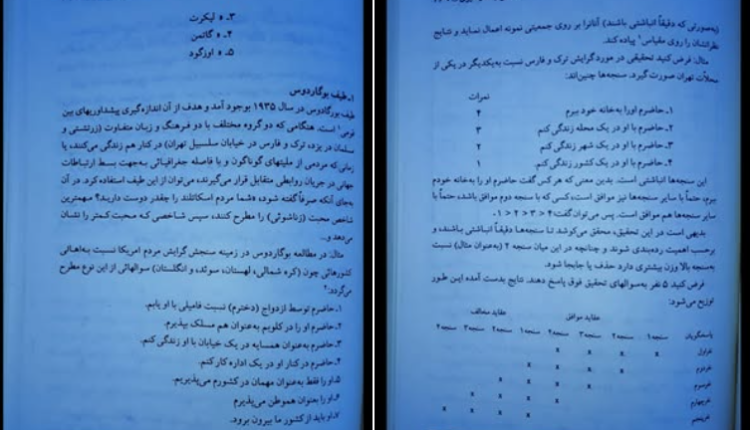 ۳ـ ٭ لیکرت
۴ـ ٭ گاتمن
۵ـ ٭ اوزگود
۱ـ طیف بوگاردوس
طیف بورگادوس در سال ۱۹۳۵ بوجود آمد و هدف از آن اندازه‌گیری پیشداوریهای بین
قومی۱ است. هنگامی که دو گروه مختلف با دو فرهنگ و زبان متفاوت (زرتشتی و
مسلمان در یزد، ترک و فارس در خیابان سلسبیل تهران) در کنار هم زندگی می‌کنند، یا
زمانی که مردمی از ملیتهای گوناگون و با فاصله جغرافیائی به‌جهت بسط ارتباطات
جهانی در جریان روابطی متقابل قرار می‌گیرند، می‌توان از این طیف استفاده کرد. در آن
به‌جای آنکه صرفاً گفته شود، «شما مردم اسکاتلند را چقدر دوست دارید؟» مهمترین
شاخص محبت (زناشوئی) را مطرح کنند، سپس شاخصی که محبت کمتر را نشان
می‌دهد و...
مثال: در مطالعه بوگاردوس در زمینه سنجش گرایش مردم امریکا نسبت به‌اهالی
کشورهائی چون (کره شمالی، لهستان، سوئد، و انگلستان) سوالهائی از این نوع مطرح
می‌گردد:۲
۱ـ حاضرم توسط ازدواج (دخترم) نسبت فامیلی با او یابم.
۲ـ حاضرم او را در کلوپم به‌عنوان هم مسلک بپذیرم.
۳ـ حاضرم به‌عنوان همسایه در یک خیابان با او زندگی کنم.
۴ـ حاضرم در کنار او در یک اداره کار کنم.
۵ـ او را فقط به‌عنوان مهمان در کشورم می‌پذیریم.
۶ـ او را بعنوان هموطن می‌پذیرم
۷ـ او باید از کشور ما بیرون برود.
(به‌صورتی که دقیقاً انباشتی باشند) آنانرا بر روی جمعیتی نمونه اعمال نماید و نتایج
نظراتشان را روی مقیاس۱ پیاده کند.
مثال: فرض کنید تحقیقی در مورد گرایش ترک و فارس نسبت به‌یکدیگر در یکی از
محلات تهران صورت گیرد. سنجه‌ها چنین‌اند:
نمرات
۱ـ حاضرم او را به خانه خود ببرم ۴
۲ـ حاضرم با او در یک محله زندگی کنم. ۳
۳ـ حاضرم با او در یک شهر زندگی کنم. ۲
۴ـ حاضرم با او در یک کشور زندگی کنم. ۱
این سنجه‌ها انباشتی است. بدین معنی که هر کس گفت حاضرم او را به‌خانه خودم
ببرم، حتماً با سایر سنجه‌ها نیز موافق است، کسی که با سنجه دوم موافق باشد، حتماً با
سایر سنجه‌ها هم موافق است. پس می‌توان گفت ۴ > ۳ > ۲ > ۱.
بدیهی است در این تحقیق، محقق می‌کوشد تا سنجه‌ها دقیقاً انباشتی باشند، و
برحسب اهمیت رده‌بندی شوند و چنانچه در این میان سنجه ۲ (به‌عنوان مثال) نسبت
به‌سنجه بالا وزن بیشتری دارد حذف یا جابجا شود.
فرض کنید ۵ نفر به‌سوالهای تحقیق فوق پاسخ دهند. نتایج بدست آمده این طور
توزیع می‌شود:
عقاید موافق عقاید مخالف
پاسخگویان سنجه۱ سنجه۲ سنجه۳ سنجه۴ سنجه۱ سنجه۲ سنجه۳ سنجه۴
نفراول x x x x
نفردوم x x x x
نفرسوم x x x x
نفرچهارم x x x x
نفرپنجم x x x x